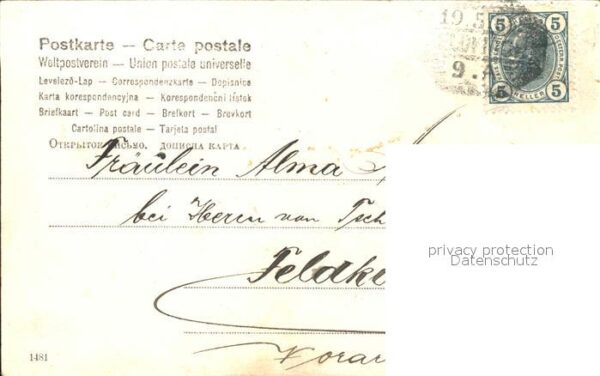 19.5
9.
5 5
5 HELLER 5
Postkarte — Carte postale
Weltpostverein — Union postale universelle
Levelező-Lap — Correspondenzkarte — Dopisnice
Karta korespondencyjna — Korespondenční lístek
Briefkaart — Post card — Brefkort — Brevkort
Cartolina postale — Tarjeta postal
Открытое письмо. Дописна карта.
Fräulein Alma
bei Herrn von Tsch
Feldki
privacy protection
Datenschutz
Vorar
1481